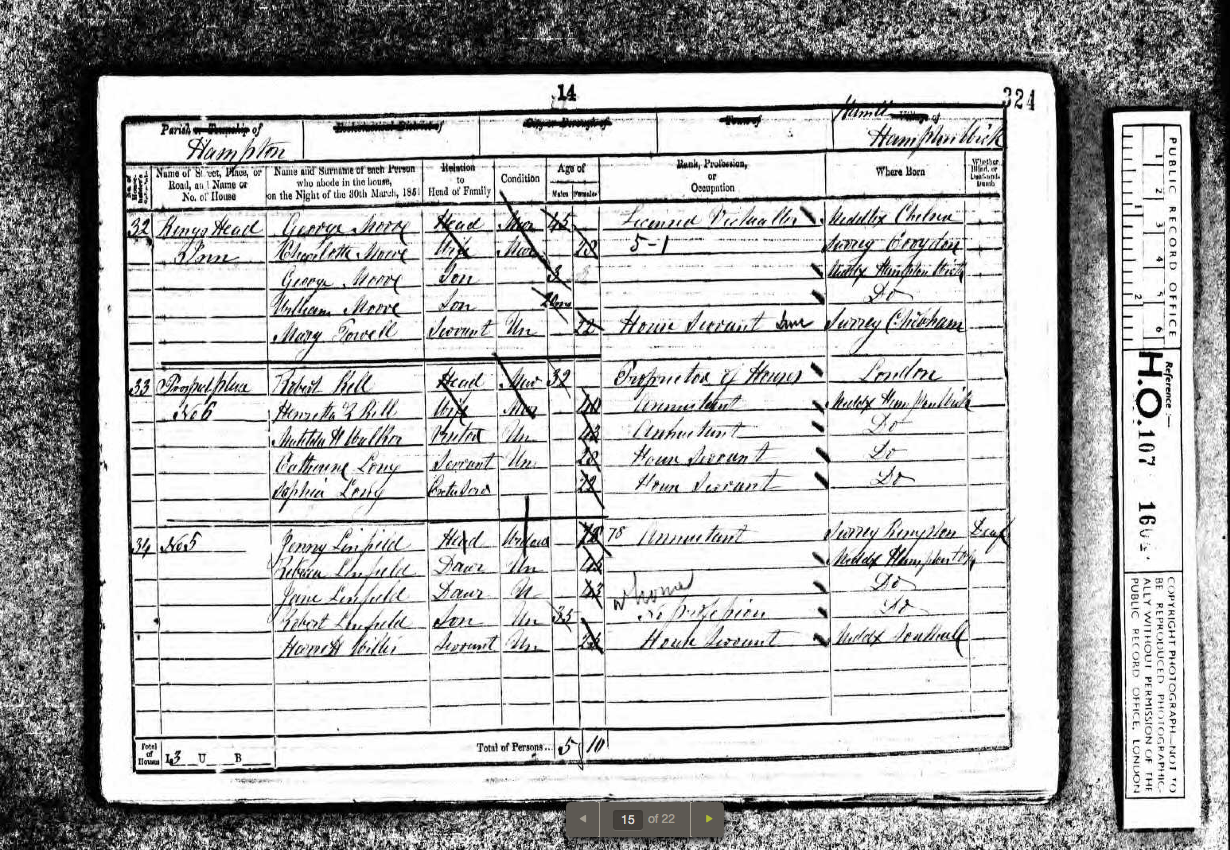 14
324
Parish or Township of
Hampton
Ecclesiastical District of
City or Borough of
Town of
Hamlt Village of
Hampton Wick
Name of Street, Place, or Road, and Name or No. of House
Name and Surname of each Person who abode in the house, on the Night of the 30th March, 1851
Relation to Head of Family
Condition
Age of
Males Females
Rank, Profession, or Occupation
Where Born
Whether Blind, or Deaf-and-Dumb
32 Kings Head George Moore Head Mar 45 Licensed Victualler Middx Chelsea
Inn Charlotte Moore Wife Mar 5-1 Surrey Croydon
George Moore Son 3 Middx Hampton Wick
William Moore Son Do
Mary Powell Servant Un 22 House Servant Surrey
33 Prospect place Robert Hell Head Mar 32 Proprietor of Houses London
No 6 Henrietta Wife Mar Annuitant Middx Hampton Wick
Matilda H Un 43 Annuitant Do
Catherine Long Servant Un House Servant Do
Sophia Long 22 House Servant Do
34 No 5 Jenny Linfield Head Widow 78 78 Annuitant Surrey Deaf
Rebecca Linfield Daur Un Middx Hampton
Jane Linfield Daur U 43 Do
at home
Robert Linfield Son Un 35 No profession Do
Harriett Willis Servant Un House Servant Middx Southall
Total of Houses
I 3 U B
Total of Persons... 5 10
PUBLIC RECORD OFFICE
1 2 3 4 5 6
1 2
Reference :-
H.O. 107
COPYRIGHT PHOTOGRAPH—NOT TO BE REPRODUCED PHOTOGRAPHICALLY WITHOUT PERMISSION OF THE PUBLIC RECORD OFFICE, LONDON
15 of 22